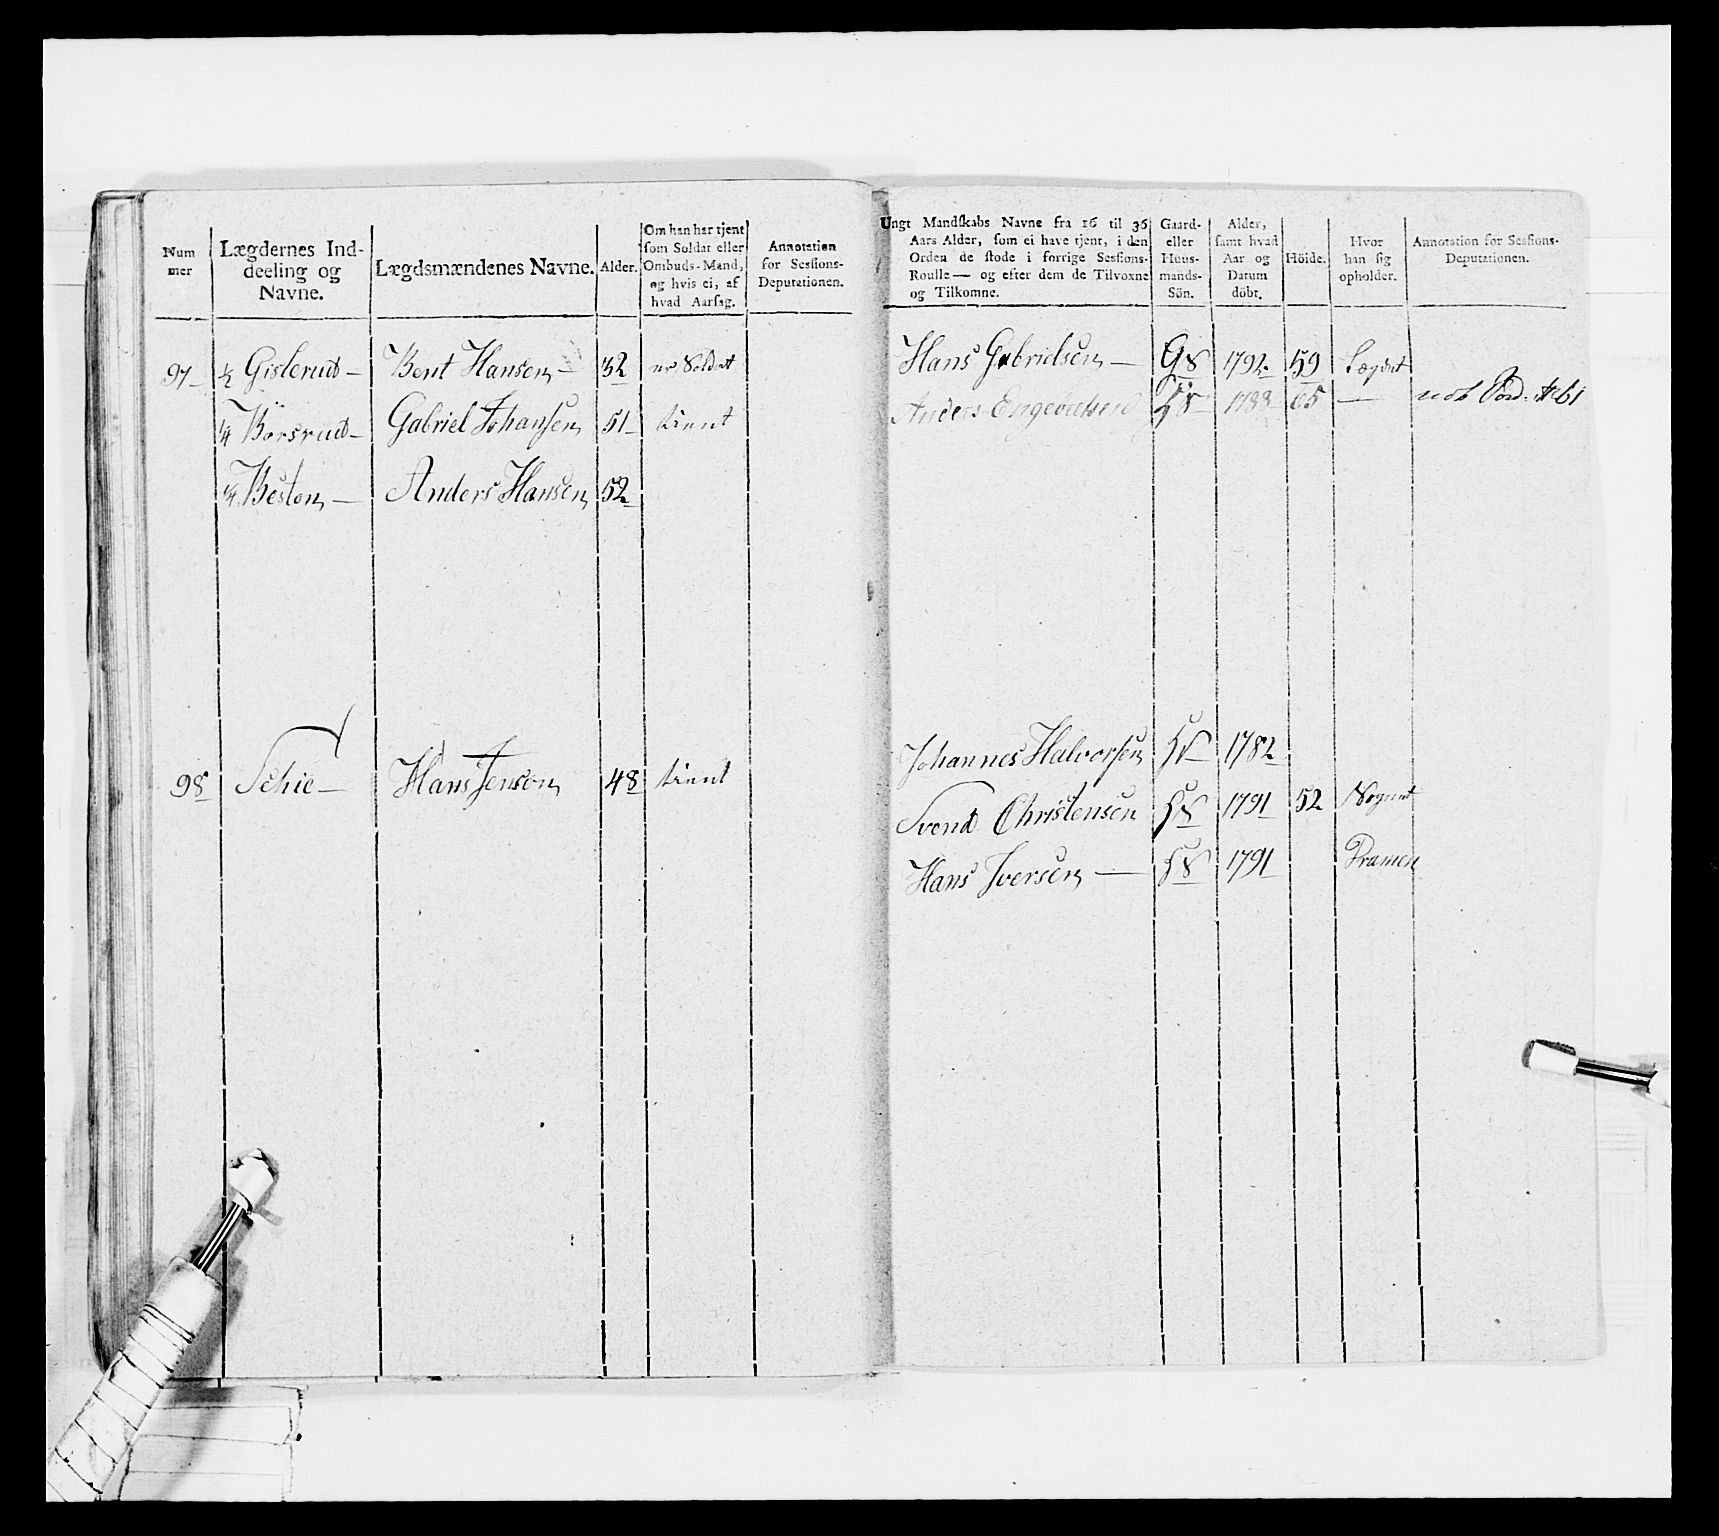 Num
mer
Lægdernes Ind-
deeling og
Navne.
Lægdsmændenes Navne.
Alder.
Om han har tjent
som Soldat eller
Ombuds-Mand,
og hvis ei, af
hvad Aarsag.
Annotation
for Sessions-
Deputationen.
97 ½ Gislerud Bent Hansen 32 er Soldat
¼ Börsrud Gabriel Johansen 51 tient
¼ Beston Anders Hansen 52
98 Schie Hans Jenson 48 tient
Ungt Mandskabs Navne fra 16 til 36
Aars Alder, som ei have tjent, i den
Orden de stode i forrige Sessions-
Roulle — og efter dem de Tilvoxne
og Tilkomne.
Gaard-
eller
Huus-
mands-
Sön.
Alder,
samt hvad
Aar og
Datum
döbt.
Höide.
Hvor
han sig
opholder.
Annotation for Sessions-
Deputationen.
Hans Gabrielsen — G S 1792 59 Lægdet
Anders Engebretsen H S 1788 65 — No 61
Johannes Halvorsen H S 1782
Svend Christensen H S 1791 52
Hans Iversen — H S 1791 Dramen